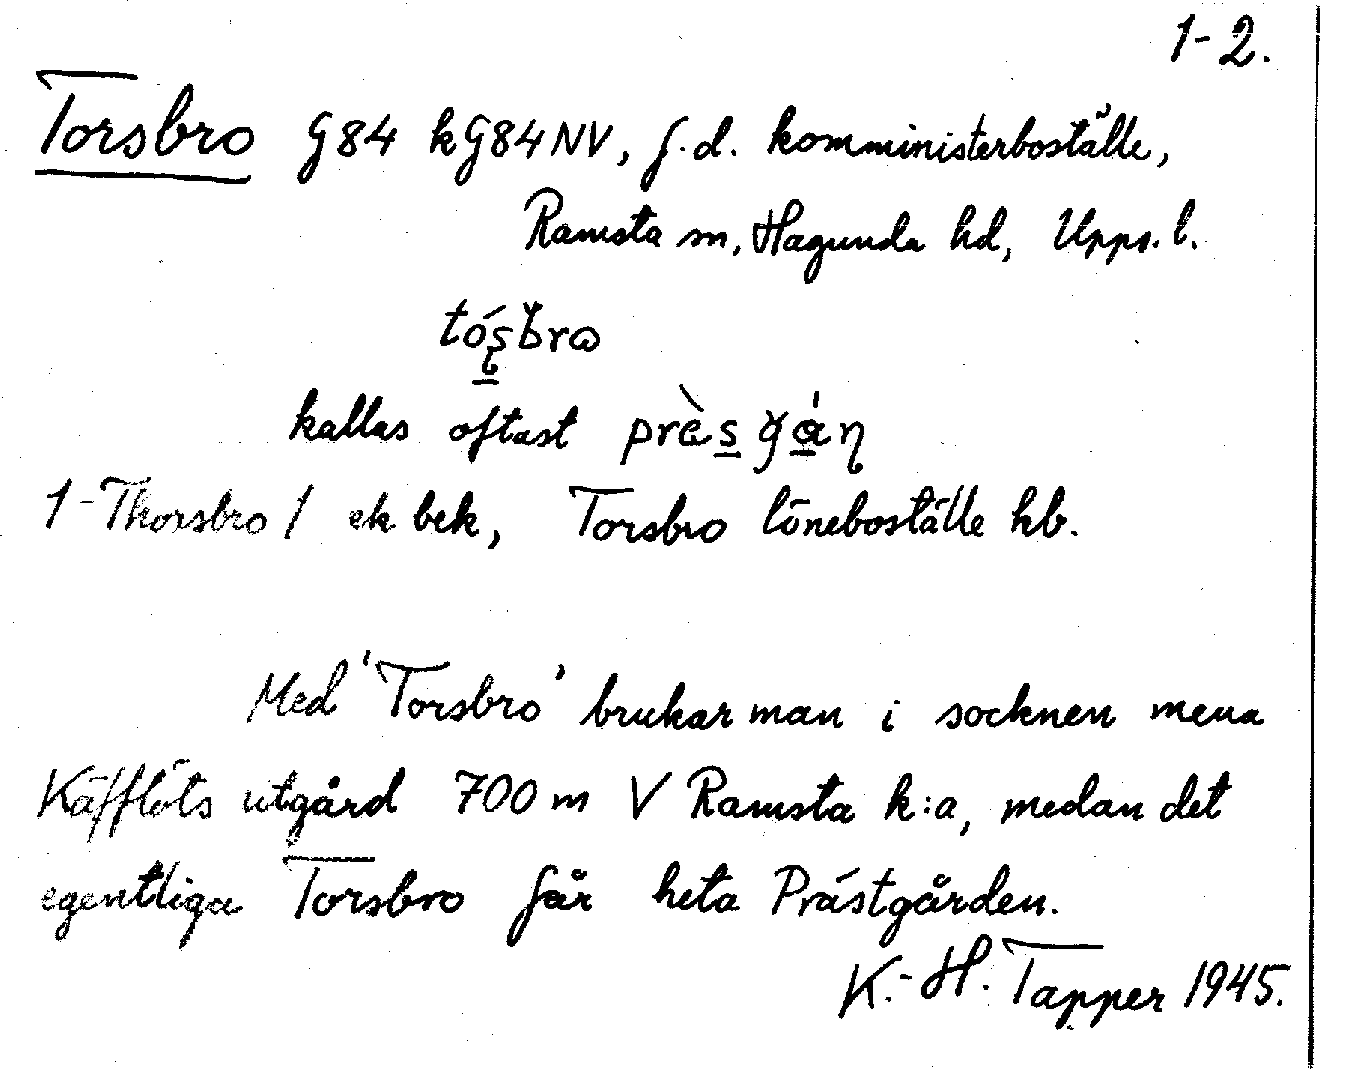 1-2.
Torsbro G84 kG84NV, f.d. komministerboställe,
Ramsta sn, Hagunda hd, Upps. l.
kallas oftast
1-Thorsbro / ek bek, Torsbro löneboställe hb.
Med 'Torsbro' brukar man i socknen mena
Käfflöts utgård 700 m V Ramsta k:a, medan det
egentliga Torsbro får heta Prästgården.
K.-H. Tapper 1945.